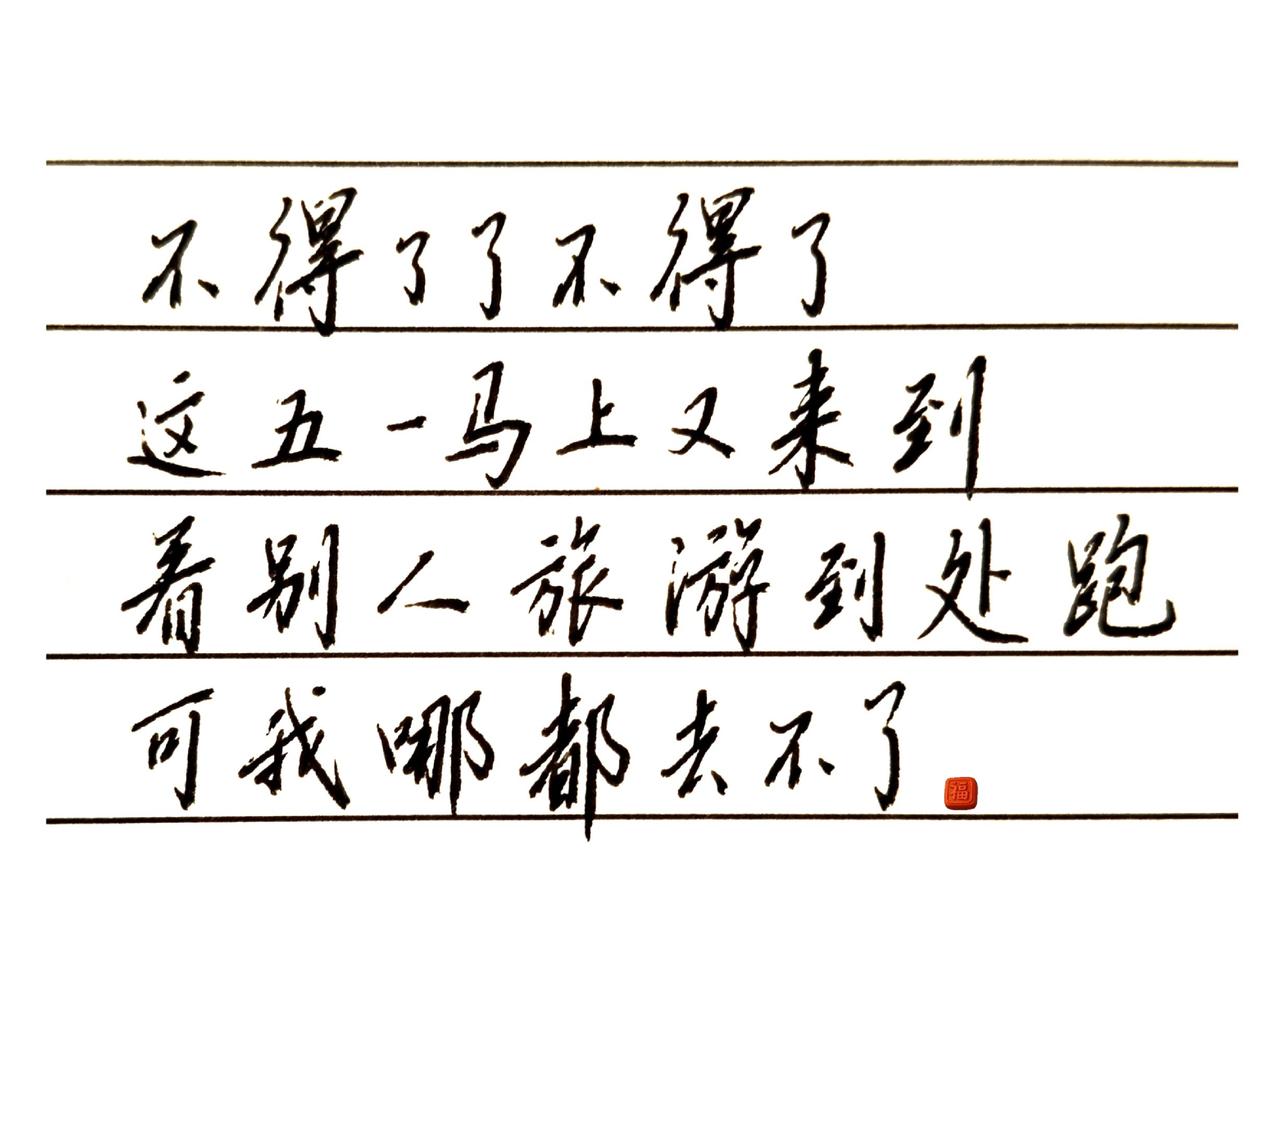 不得了了不得了
这五一马上又来到
看别人旅游到处跑
可我哪都去不了
福